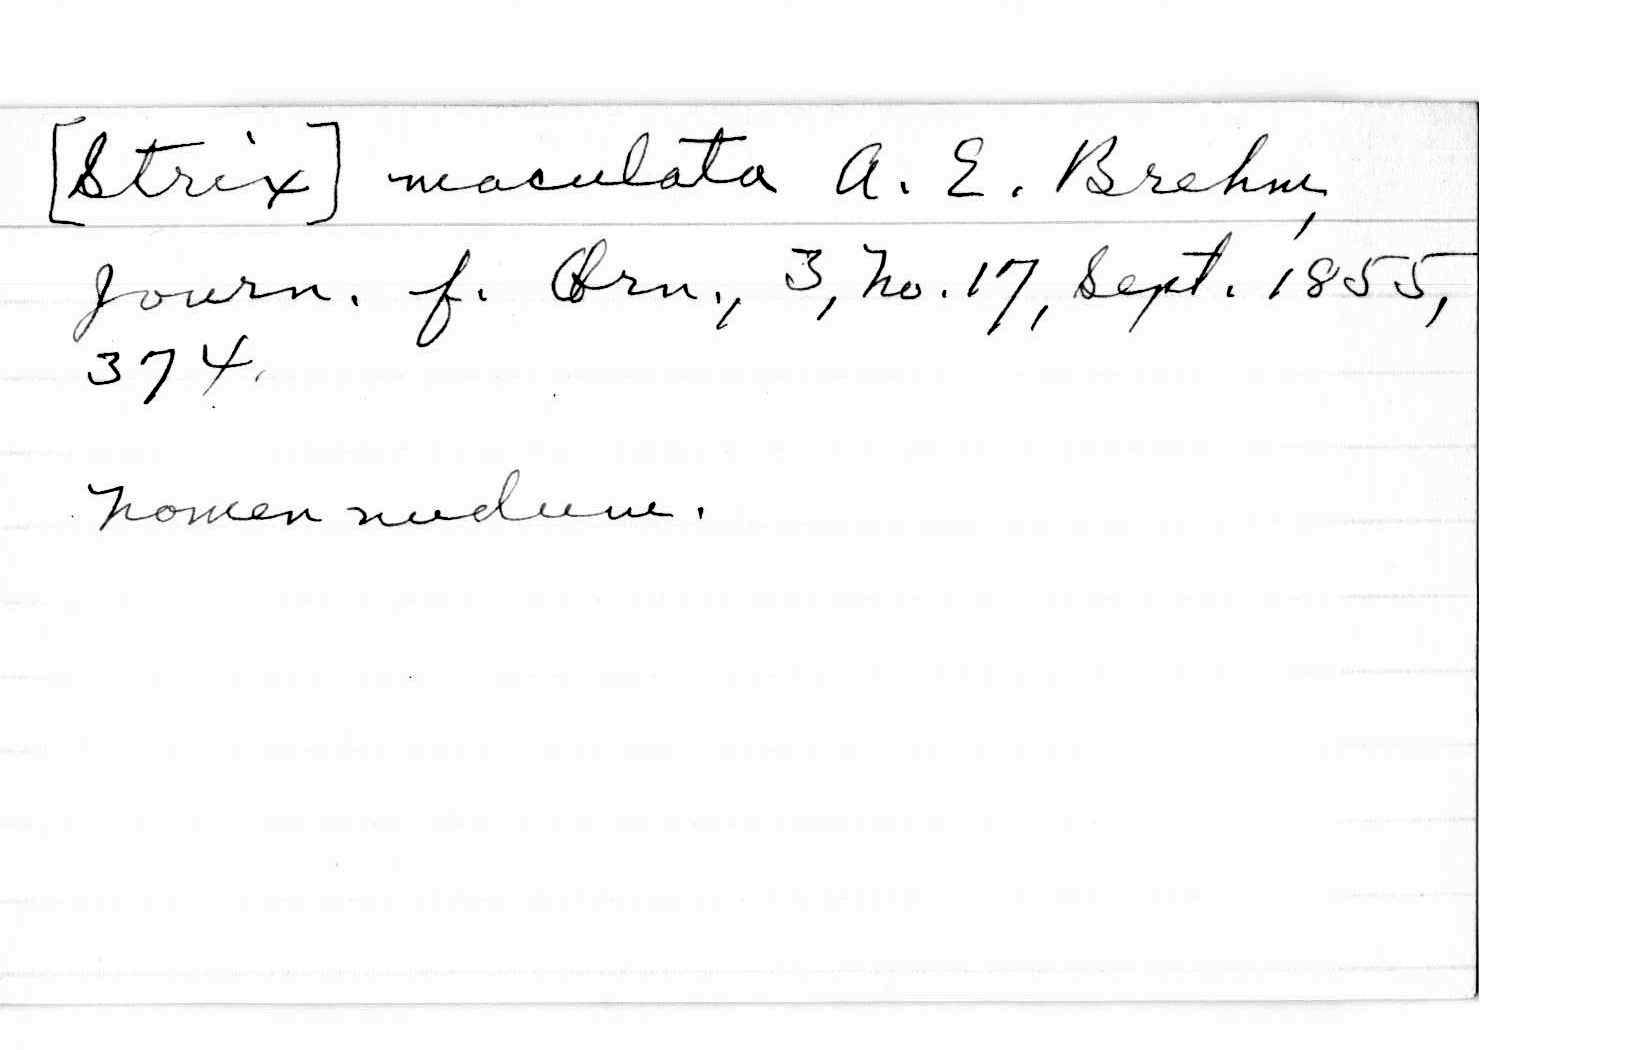 [Strix] maculata A. E. Brehm,
Journ. f. Orn., 3, No. 17, Sept. 1855,
374.
Nomen nudum.